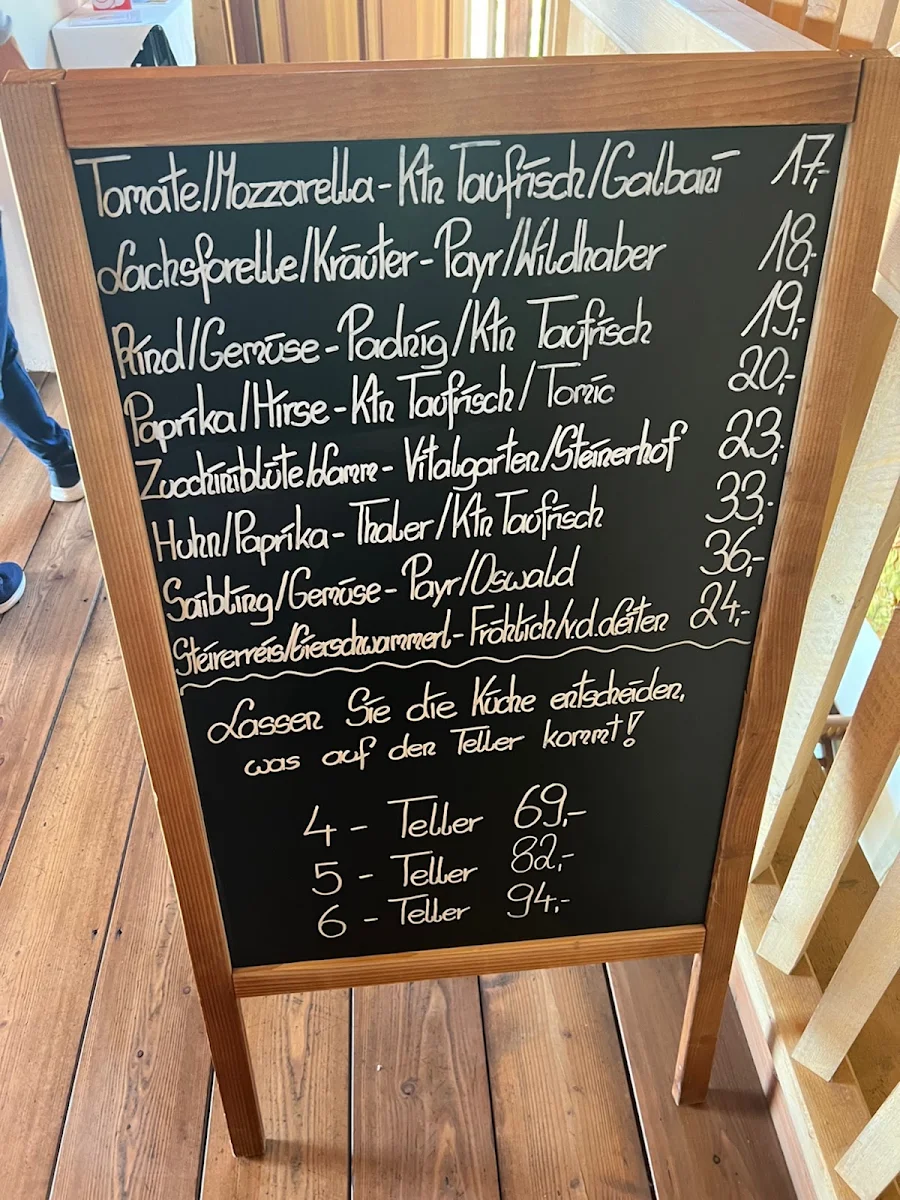 Tomate/Mozzarella - Ktn Taufrisch/Galbani 17,-
Lachsforelle/Kräuter - Payr/Wildhaber 18,-
Rind/Gemüse - Padnig/Ktn Taufrisch 19,-
Paprika/Hirse - Ktn Taufrisch/Tomic 20,-
Zucchiniblüte/Lamm - Vitalgarten/Steinerhof 23,-
Huhn/Paprika - Thaler/Ktn Taufrisch 33,-
Saibling/Gemüse - Payr/Oswald 36,-
Steirerreis/Eierschwammerl - Fröhlich/v.d.Leiten 24,-
Lassen Sie die Küche entscheiden,
was auf den Teller kommt!
4 - Teller 69,-
5 - Teller 82,-
6 - Teller 94,-